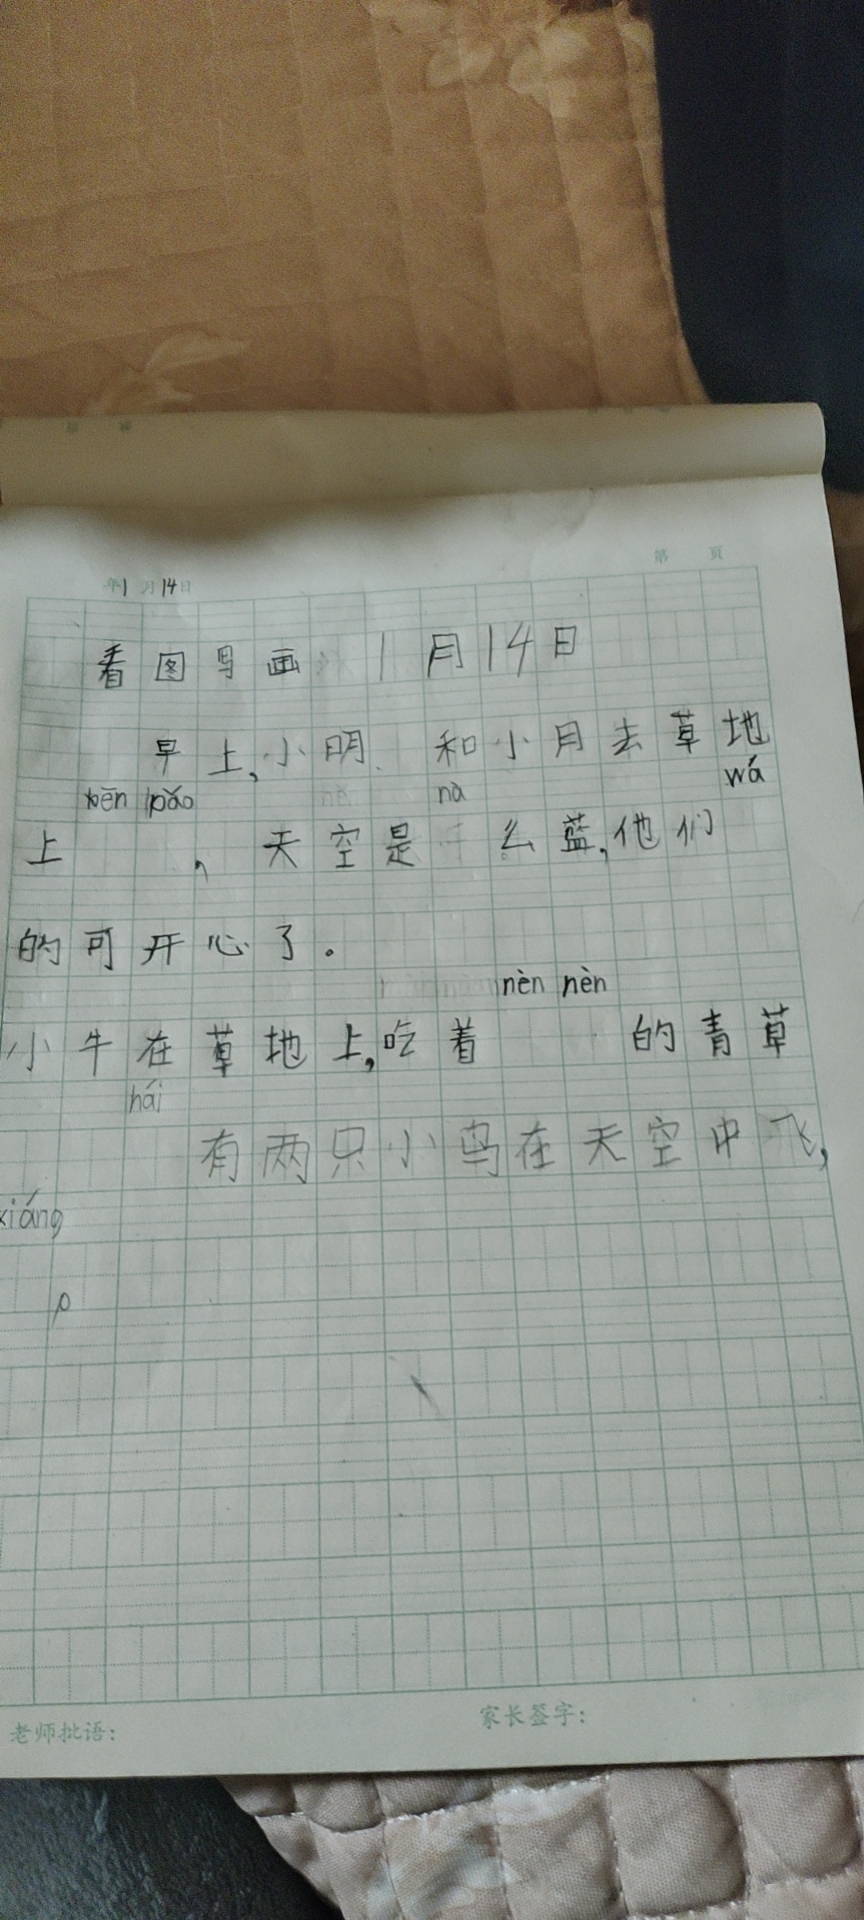 年1月14日
第 页
看图写画 1月14日
早上,小明 和小月去草地
bēn pǎo nà wá
上 ,天空是 么蓝,他们
的可开心了。
nèn nèn
小牛在草地上,吃着 的青草
hái
有两只小鸟在天空中飞,
xiáng
老师批语:
家长签字: